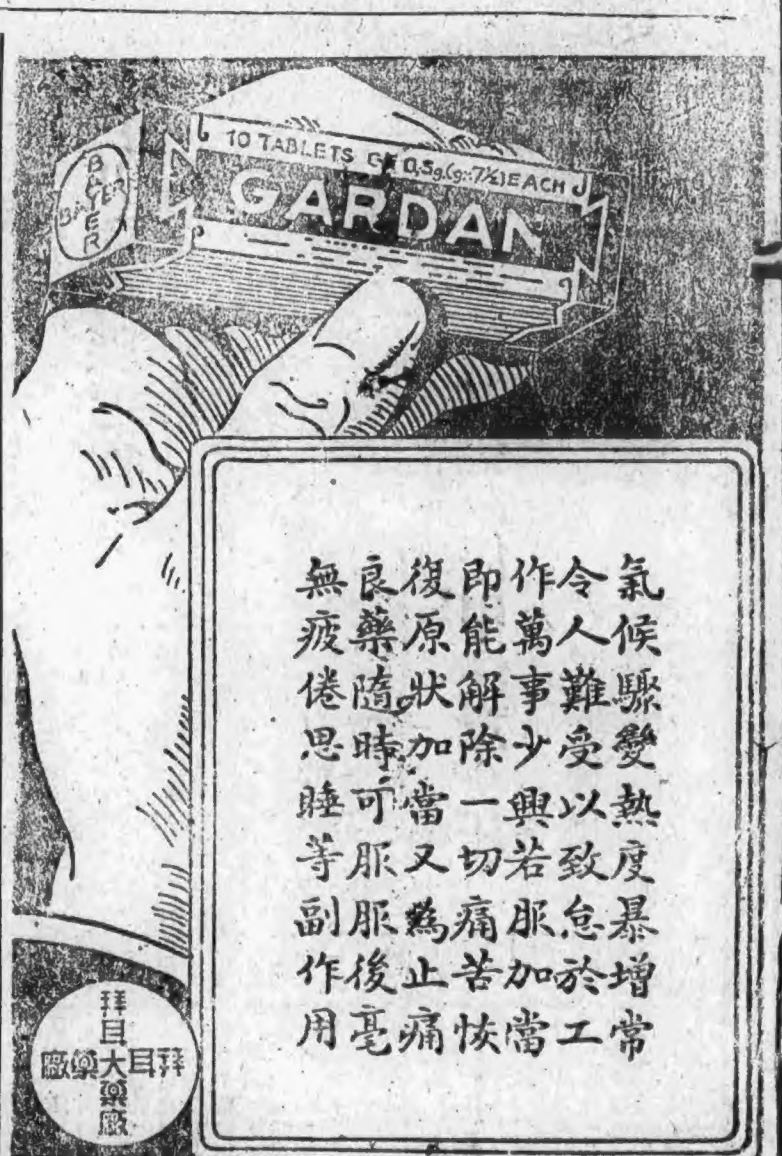 10 TABLETS OF 0,5g.(g:7½)EACH
GARDAN
BAYER
BAYER
氣候驟變熱度暴增常
令人難受以致怠於工
作萬事少興若服加當
即能解除一切痛苦恢
復原狀加當又為止痛
良藥隨時可服服後毫
無疲倦思睡等副作用
拜耳大藥廠
拜耳大藥廠